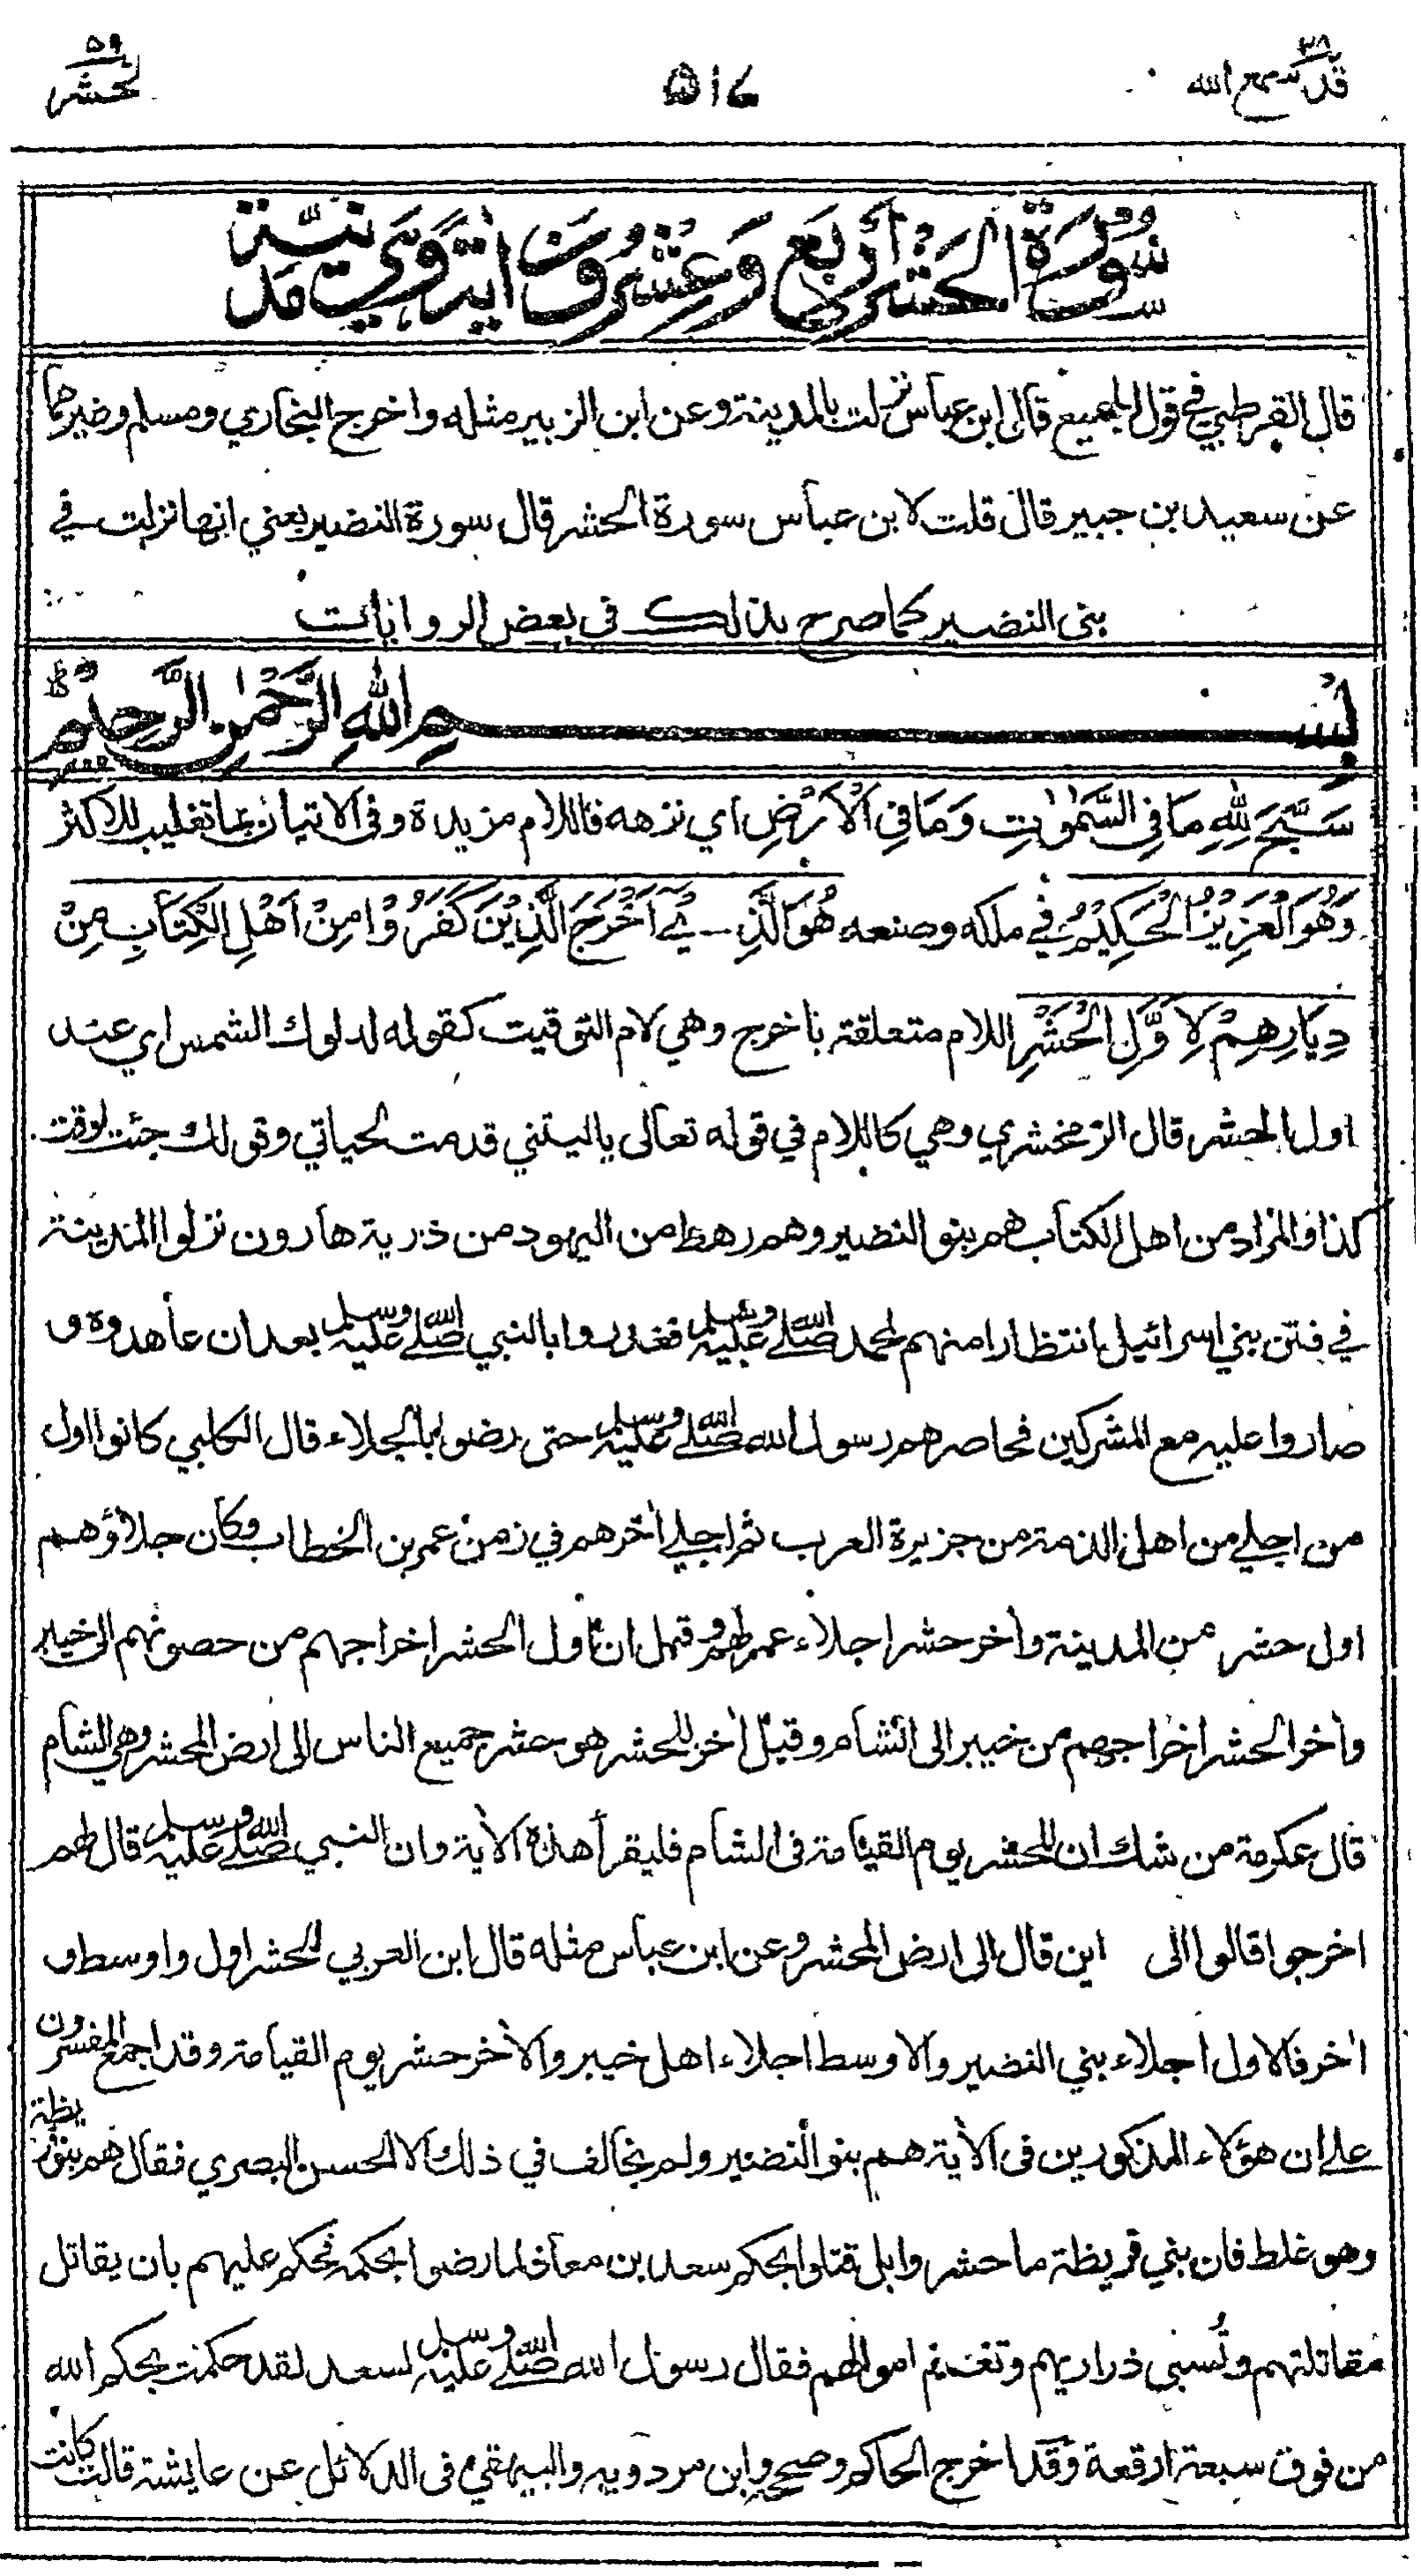 قد سمع الله ٢٨
٥١٧
٥٩ الحشر
سُوْرَةُ الحَشْرِ أَرْبَع وَعِشْرُوْنَ اٰيَة وَهِيَ مَدَنِيَّة
قال القرطبي في قول الجميع قال ابن عباس نزلت بالمدينة وعن ابن الزبير مثله واخرج البخاري ومسلم وغيرهما
عن سعيد بن جبير قال قلت لابن عباس سورة الحشر قال سورة النضير يعني انها نزلت في
بني النضير كما صرح بذلك في بعض الروايات
بِسْمِ اللهِ الرَّحْمٰنِ الرَّحِيْمِ
سَبَّحَ لِلّٰهِ مَا فِي السَّمٰوٰتِ وَمَا فِي الْاَرْضِ اي نزهه فاللام مزيدة وفي الاتيان بما تغليب للاكثر
وَهُوَ الْعَزِيْزُ الْحَكِيْمُ في ملكه وصنعه هُوَ الَّذِيْ اَخْرَجَ الَّذِيْنَ كَفَرُوْا مِنْ اَهْلِ الْكِتَابِ مِنْ
دِيَارِهِمْ لِاَوَّلِ الْحَشْرِ اللام متعلقة باخرج وهي لام التوقيت كقوله لدلوك الشمس اي عند
اول الحشر قال الزمخشري وهي كاللام في قوله تعالى ياليتني قدمت لحياتي وقولك جئت لوقت
كذا فالمراد من اهل الكتاب هم بنو النضير وهم رهط من اليهود من ذرية هارون نزلوا المدينة
في فتن بني اسرائيل انتظارا منهم لمحمد صلى الله عليه وسلم فغدروا بالنبي صلى الله عليه وسلم بعد ان عاهدوه و
صاروا عليه مع المشركين فحاصرهم رسول الله صلى الله عليه وسلم حتى رضوا بالجلاء قال الكلبي كانوا اول
من اجلي من اهل الذمة من جزيرة العرب ثم اجلي اٰخرهم في زمن عمر بن الخطاب وكان جلاؤهم
اول حشر من المدينة واٰخر حشر اجلاء عمر لهم وقيل ان اول الحشر اخراجهم من حصونهم الى خيبر
واٰخر الحشر اخراجهم من خيبر الى الشام وقيل اٰخر الحشر هو حشر جميع الناس الى ارض المحشر وهي الشام
قال عكرمة من شك ان المحشر يوم القيامة في الشام فليقرأ هذه الاٰية وان النبي صلى الله عليه وسلم قال لهم
اخرجوا قالوا الى اين قال الى ارض المحشر وعن ابن عباس مثله قال ابن العربي الحشر اول واوسط و
اٰخر فالاول اجلاء بني النضير والاوسط اجلاء اهل خيبر والاٰخر حشر يوم القيامة وقد اجمع المفسرون
على ان هؤلاء المذكورين في الاٰية هم بنو النضير ولم يخالف في ذلك الا الحسن البصري فقال هم بنو قريظة
وهو غلط فان بني قريظة ما حشروا بل قتلوا بحكم سعد بن معاذ لما رضوا بحكمه فحكم عليهم بان يقاتل
مقاتلتهم وتُسبى ذراريهم وتغنم اموالهم فقال رسول الله صلى الله عليه وسلم لسعد لقد حكمت بحكم الله
من فوق سبعة ارقعة وقد اخرج الحاكم وصححه وابن مردويه والبيهقي في الدلائل عن عايشة قالت كانت